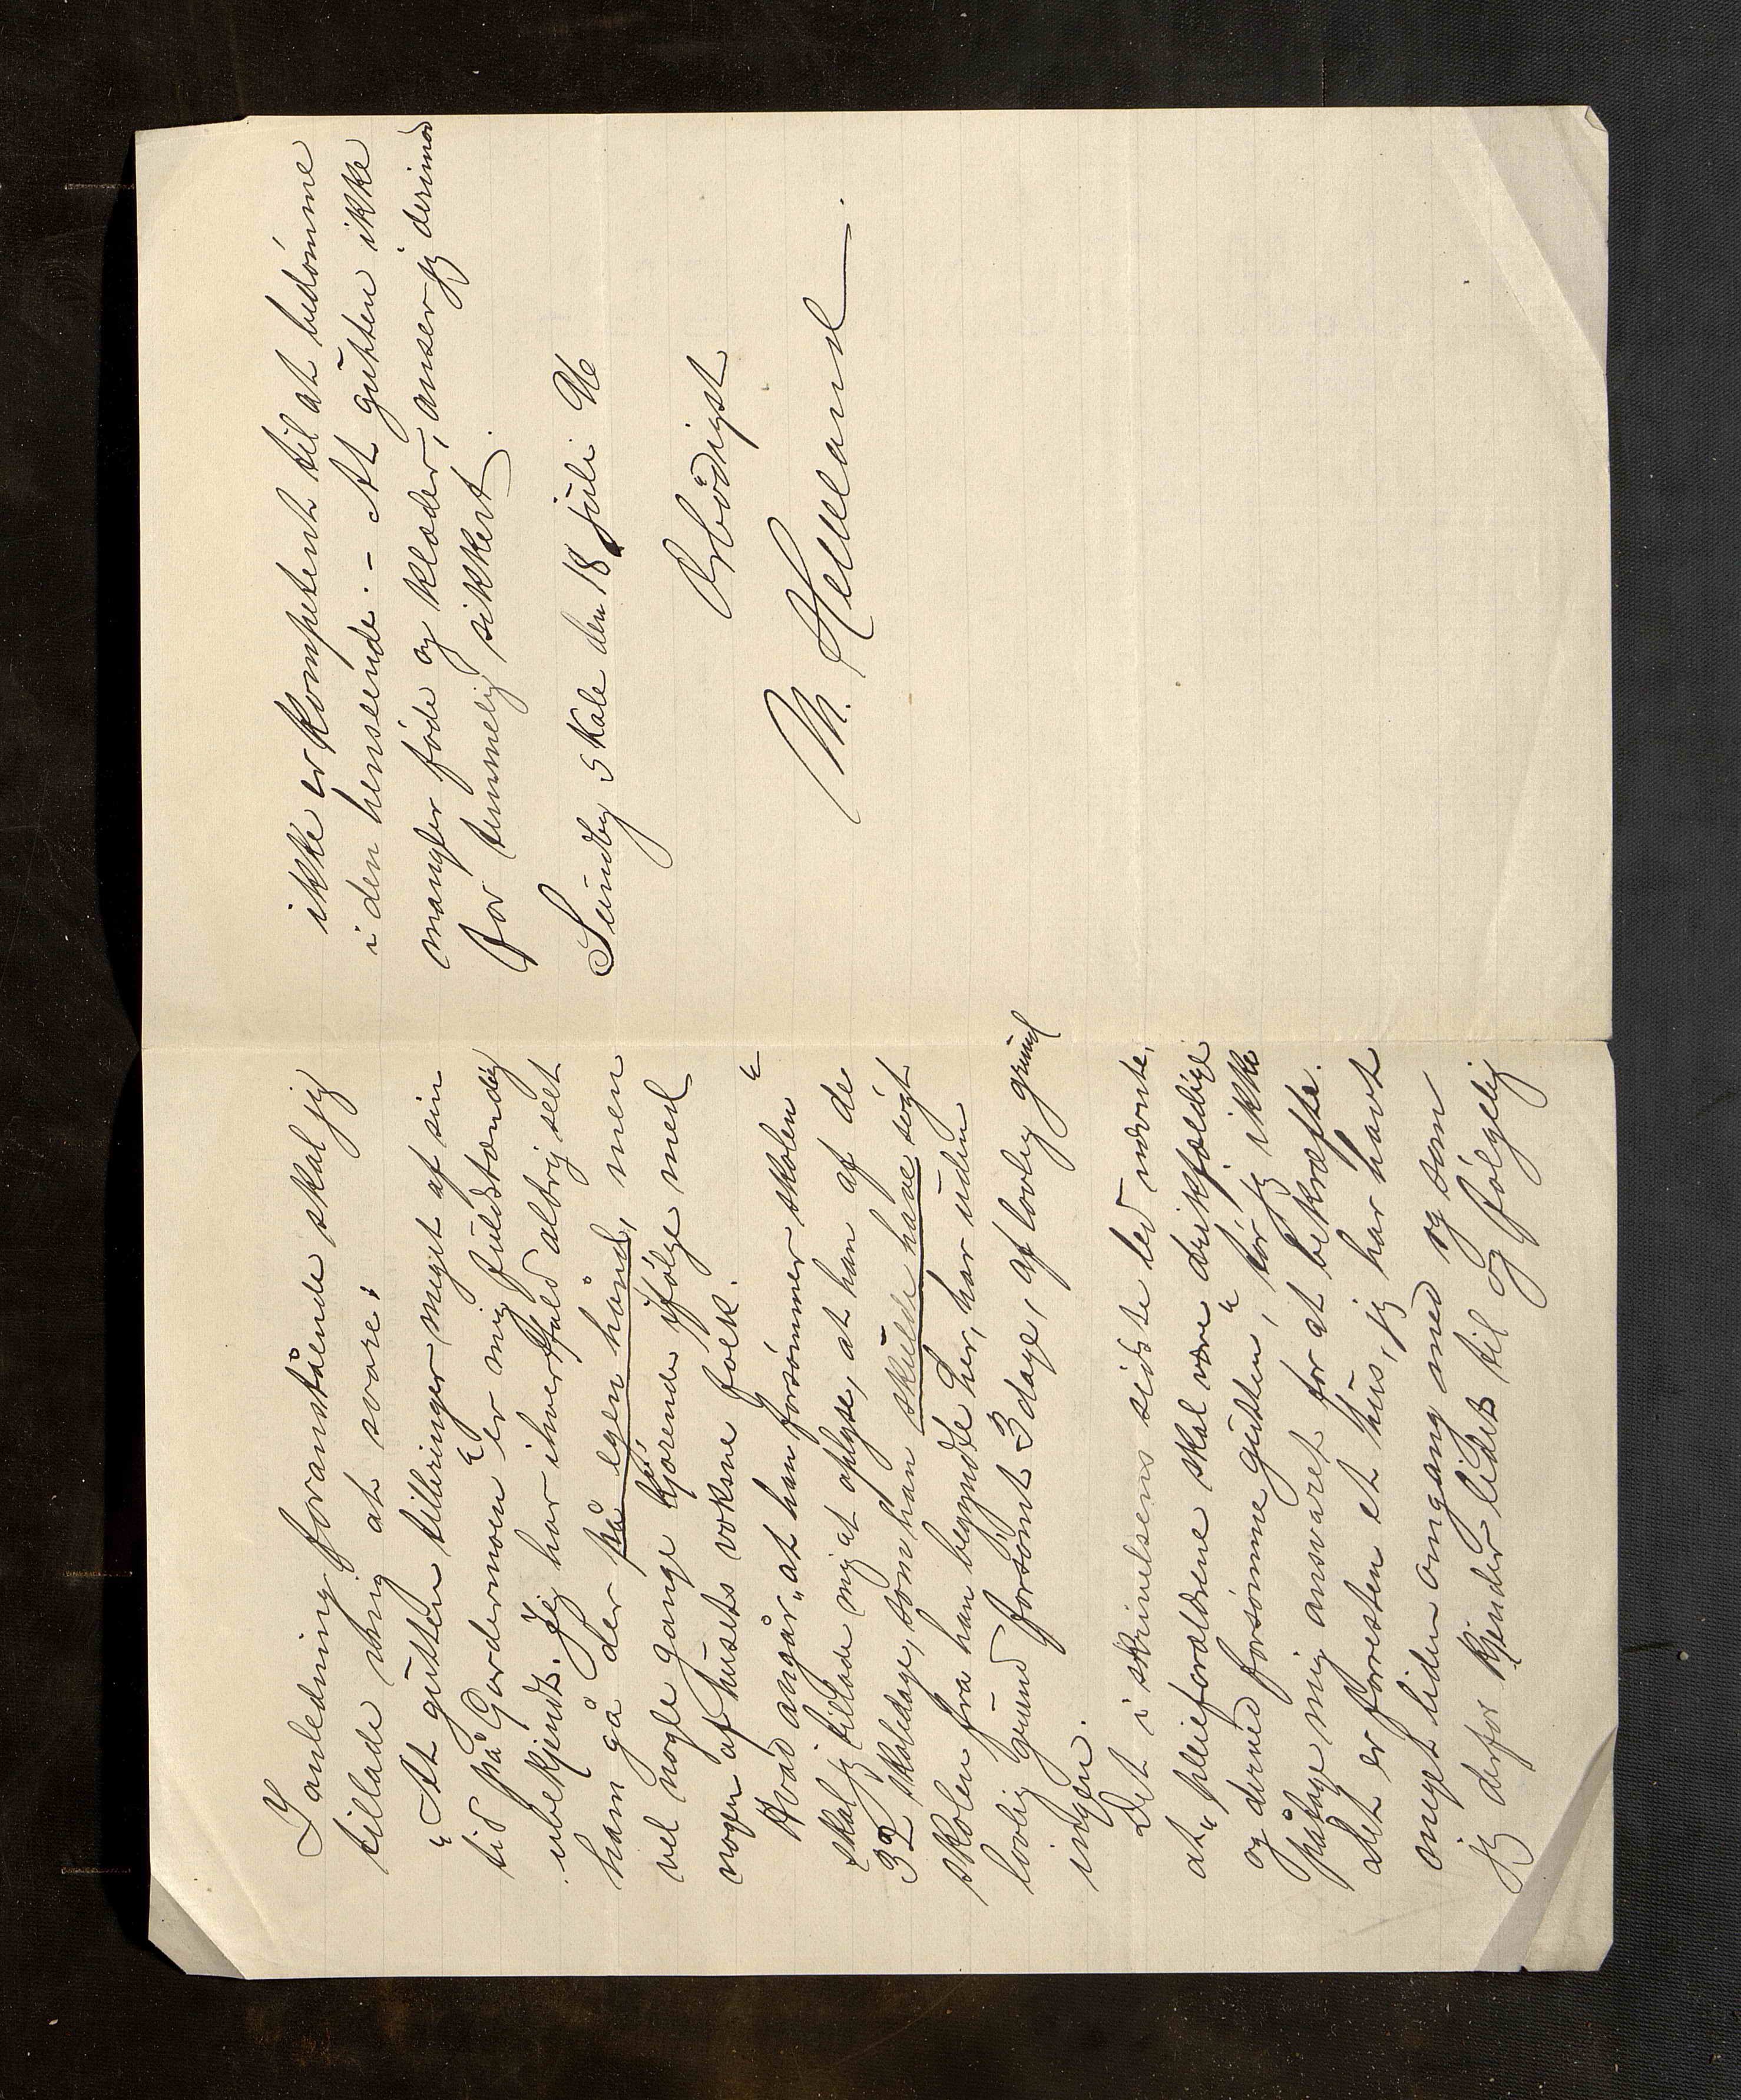 I anledning foranstående skal jeg
tillade mig at svare:
"At gutten tilbringer meget af sin
tid på Gardermoen" er mig fuldstændig
ubekjendt. Jeg har ihvertfald aldrig seet
ham gå der på egen hånd, men
vel nogle gange kjørende ifølge med
nogen af husets voksne folk.
Hvad angår "at han forsømmer skolen"
skal jeg tillade mig at oplyse, at han af de
32 skoledage, som han skulde have søgt
skolen fra han begyndte her, har uden
lovlig grund forsømt 3 dage, af lovlig grund
ingen.
Det i skrivelsens sidste led nævnte,
at "pleieforældrene skal være drikfældige
og derved forsømme gutten", tør jeg ikke
påtage mig ansvaret for at bekræfte.
Det er forresten et hus, jeg har havt
meget liden omgang med og som
jeg derfor kjender lidet til og følgelig
ikke er kompetent til at bedømme
i den henseende. - At gutten ikke
mangler føde og klæder, anser jeg derimod
for temmelig sikkert.
Sundby skole den 18 juli 96
Ærbødigst
M. Helland.